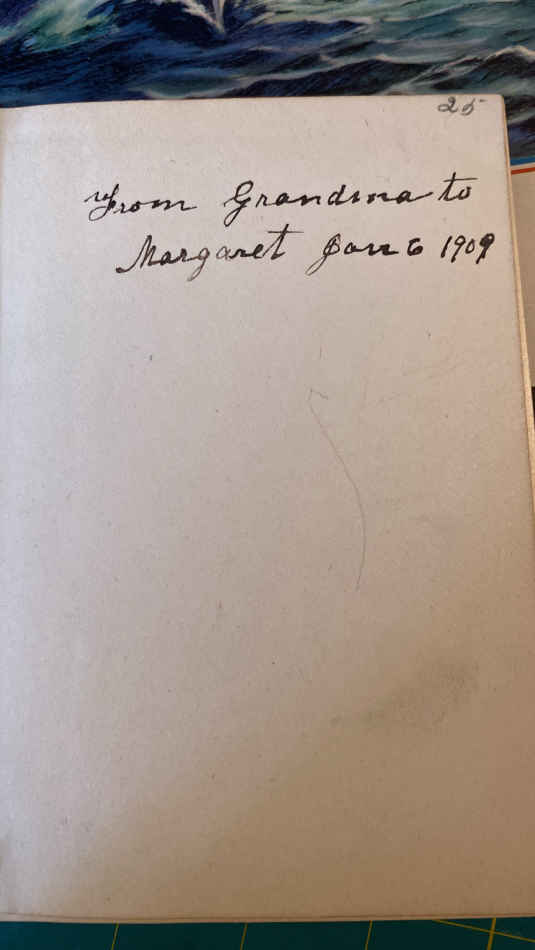 25
From Grandma to
Margaret Jan 6 1909